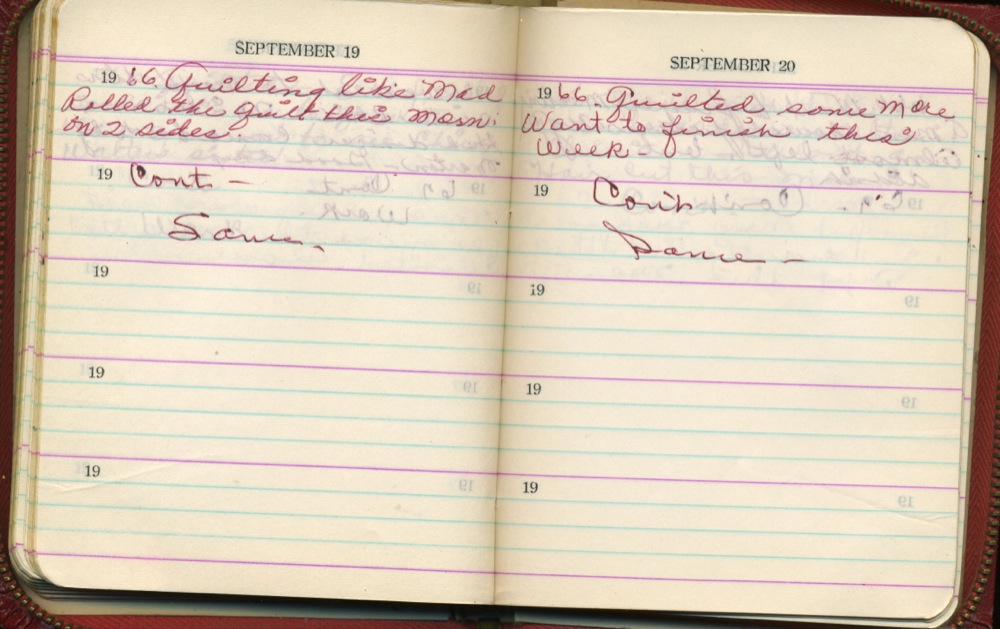 SEPTEMBER 19
19 66. Quilting like Mad
Rolled the quilt this morn:
on 2 sides.
19 Cont -
Same.
19
19
19
SEPTEMBER 20
19 66. Quilted some more
Want to finish this
week -
19 Con't
Same -
19
19
19